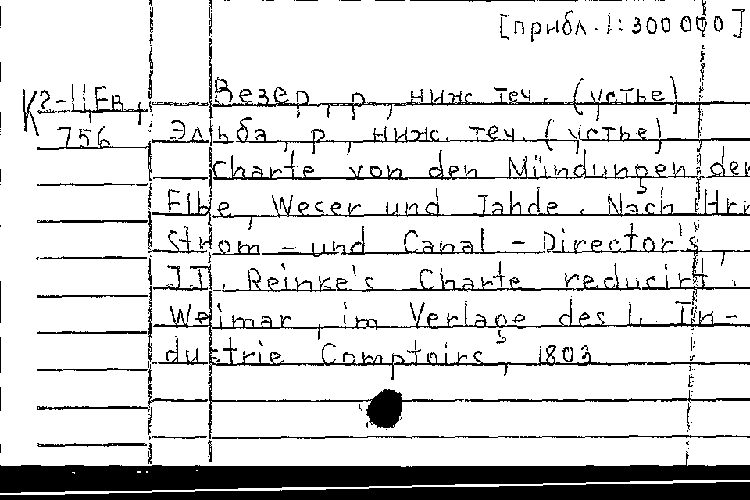 [прибл. 1:300 000]
К 2-11 Ев, Везер, р, ниж теч. (устье)
756 Эльба, р, ниж. теч. (устье)
Charte von den Mündungen der
Elbe, Weser und Jahde. Nach Hrn
Strom- und Canal-Director's
J.T. Reinke's Charte reducirt.
Weimar, im Verlage des L. In-
dustrie Comptoirs, 1803